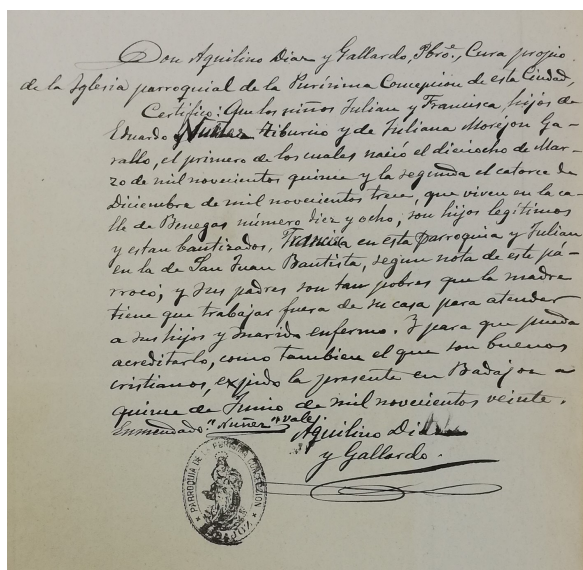 Don Aquilino Diaz y Gallardo, Pbro., Cura propio
de la Iglesia parroquial de la Purísima Concepcion de esta Ciudad,
Certifico: Que los niños Julian y Francisca, hijos de
Eduardo Nuñez Tiburcio y de Juliana Morejon Ga-
rallo, el primero de los cuales nació el dieciocho de Mar-
zo de mil novecientos quince y la segunda el catorce de
Diciembre de mil novecientos trece, que viven en la ca-
lle de Benegas número diez y ocho, son hijos legítimos
y estan bautizados, Francisca en esta Parroquia y Julian
en la de San Juan Bautista, segun nota de este pá-
rroco; y sus padres son tan pobres que la madre
tiene que trabajar fuera de su casa para atender
a sus hijos y marido enfermo. Y para que pueda
acreditarlo, como tambien el que son buenos
cristianos, expido la presente en Badajoz a
quince de Junio de mil novecientos veinte.
Enmendado "Nuñez" vale.
Aquilino Diaz
y Gallardo.
PARROQUIA DE LA PURISIMA CONCEPCION
BADAJOZ